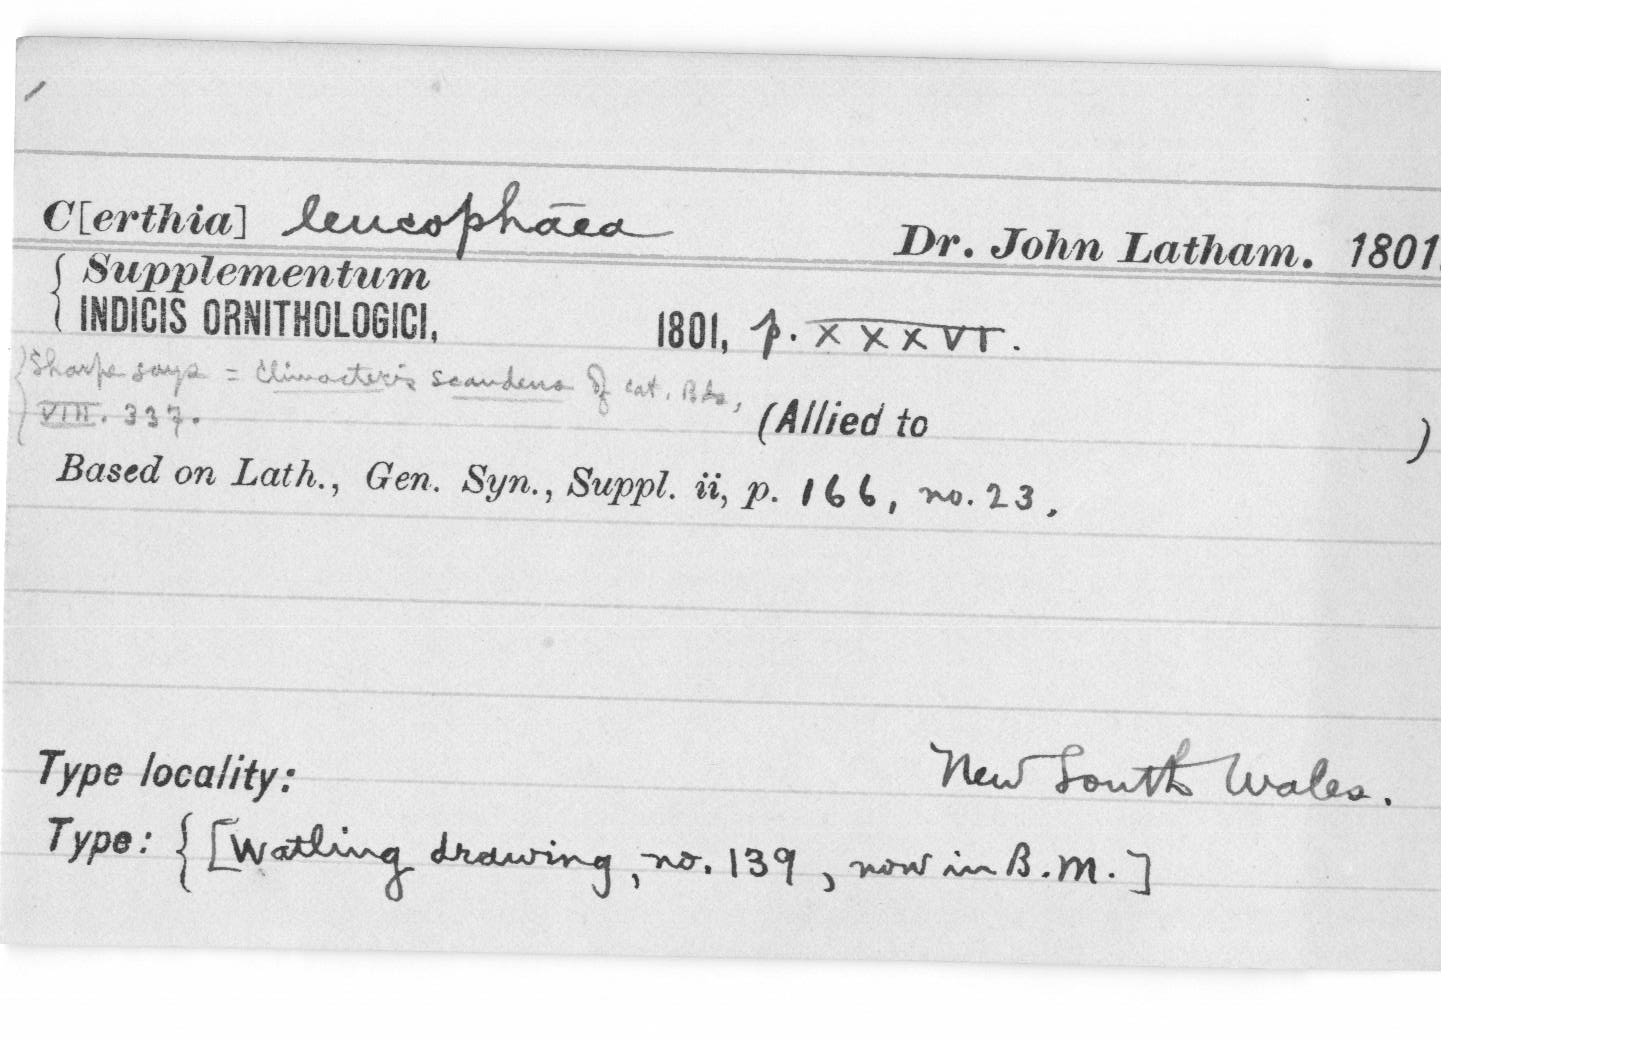 C[erthia] leucophāea Dr. John Latham. 1801.
{ Supplementum
{ INDICIS ORNITHOLOGICI, 1801, p. XXXVI.
{ Sharpe says = Climacteris scandens of Cat. Bds,
{ VIII. 337.
(Allied to )
Based on Lath., Gen. Syn., Suppl. ii, p. 166, no. 23.
Type locality: New South Wales.
Type: { [Watling drawing, no. 139, now in B.M.]